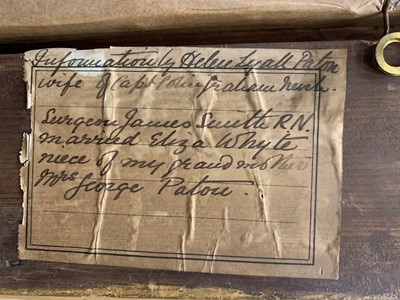 Information by Helen Lyall Paton
wife of Capt Colin Graham
Surgeon James Smith R.N.
married Eliza Whyte
niece of my grandmother
Mrs George Paton.